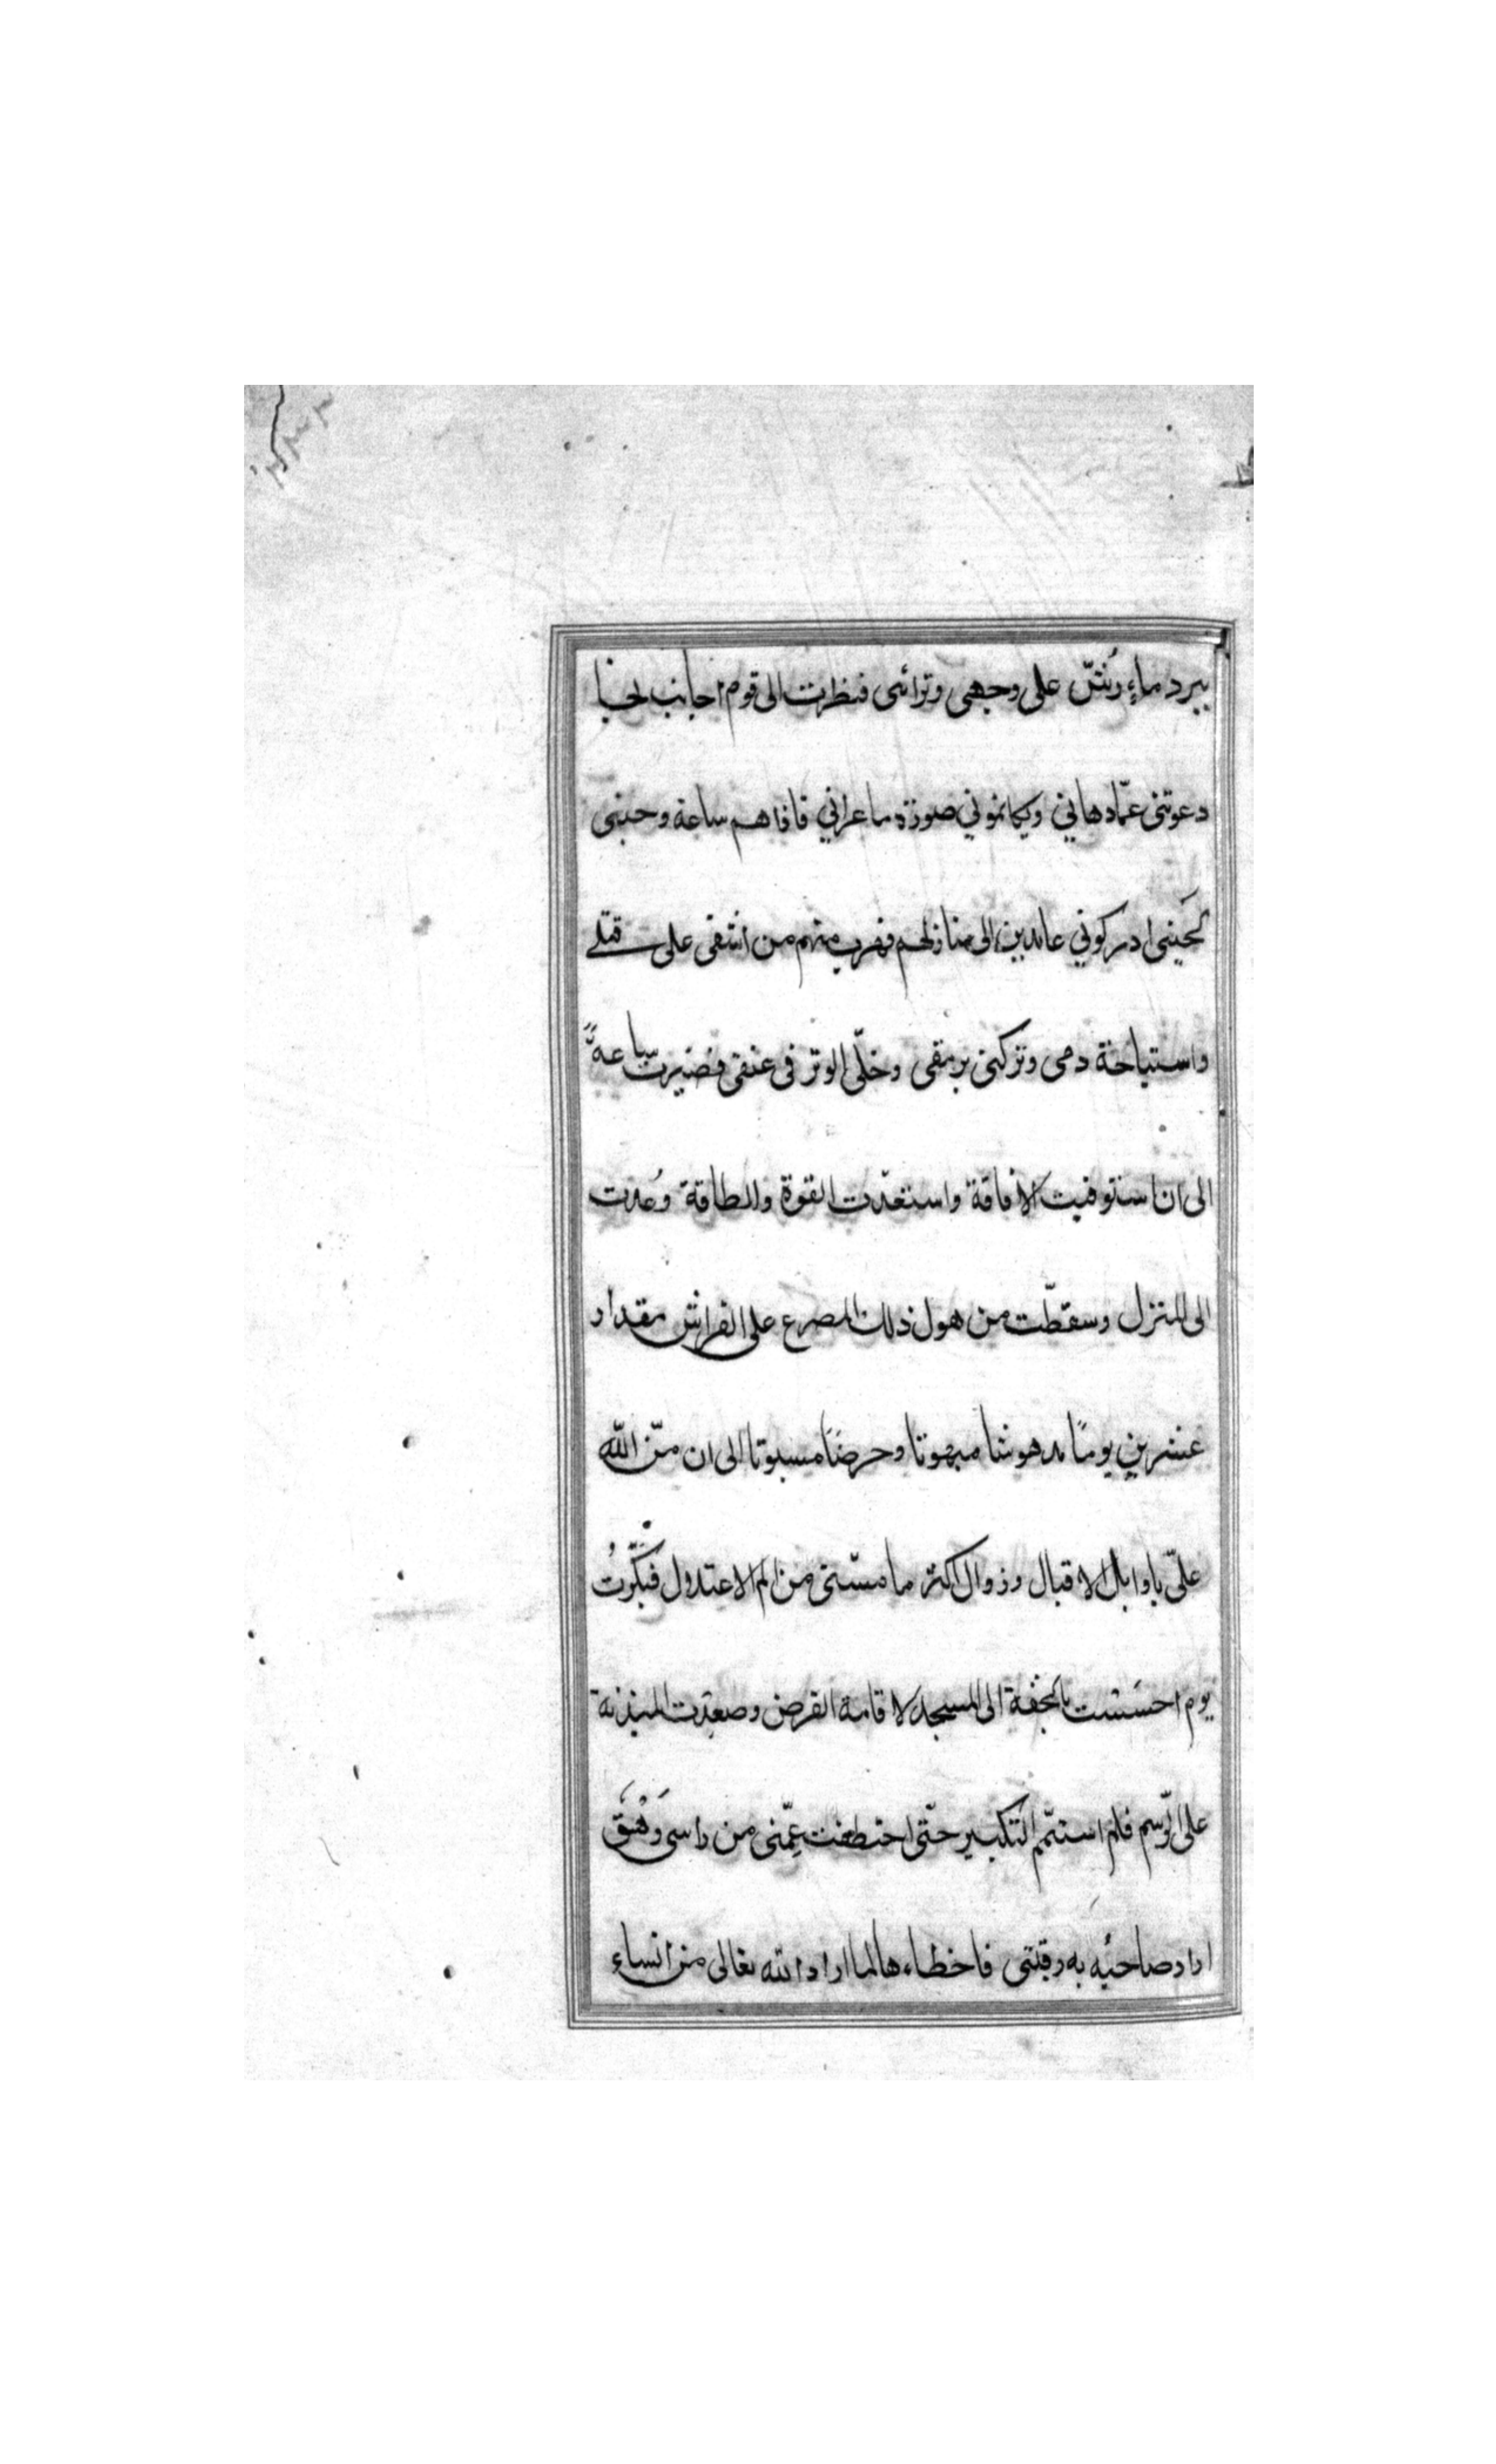 ببرد ماءٍ رُشّ على وجهى وترائى فنظرت الى قوم اجانب
دعونى عمّا دهانى صورة ما عرانى فافاهم ساعة وحبنى
ادركونى عامدين الى منازلهم فهرب منهم من اشفى على قتلى
واستباحة دمى وتركنى برمقى وخلّى الوتر فى عنقى فصبرت ساعةً
الى ان استوفيت الافاقة واستعدّت القوة والطاقة وعُدت
الى المنزل وسقطت من هول ذلك المصرع على الفراش مقدار
عشرين يومًا مدهوشا مبهوتا وحرضًا مسبوتا الى ان منّ الله
علىّ باوايل الاقبال وزوال اكثر ما مسّنى من الم الاعتدول فبكّرتُ
يوم احسَست بالخفة الى المسجد لاقامة الفرض وصعدت الميذنة
على الرّسم فلم استتمّ التكبير حتّى اختطفت عِمّتى من راسى وَهْقٌ
اراد صاحبُه به رقبتى فاخطاءها لما اراد الله تعالى من انساء